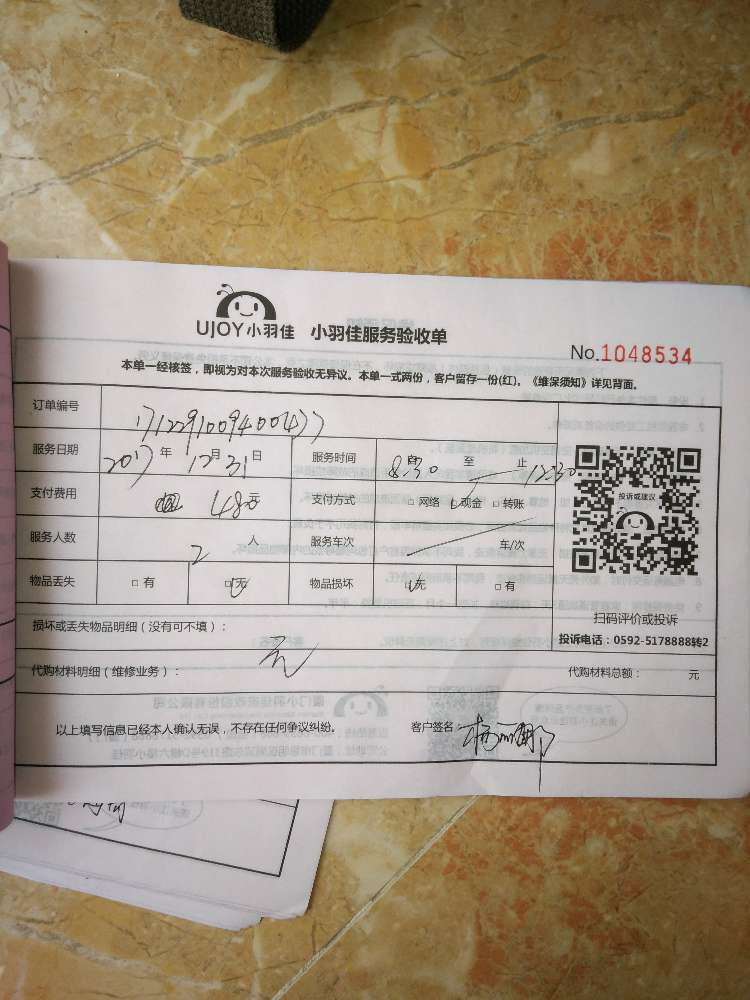 UJOY小羽佳 小羽佳服务验收单
No.1048534
本单一经核签，即视为对本次服务验收无异议。本单一式两份，客户留存一份(红)。《维保须知》详见背面。
订单编号 1712291009400477
服务日期 2017年12月31日 服务时间 8:30 至 止 12:30
支付费用 480元 支付方式 □网络 ☑现金 □转账
服务人数 2人 服务车次 车/次
物品丢失 □有 ☑无 物品损坏 ☑无 □有
投诉或建议
扫码评价或投诉
投诉电话：0592-5178888转2
损坏或丢失物品明细（没有可不填）： 无
代购材料明细（维修业务）：
代购材料总额： 元
以上填写信息已经本人确认无误，不存在任何争议纠纷。 客户签名：杨丽娜